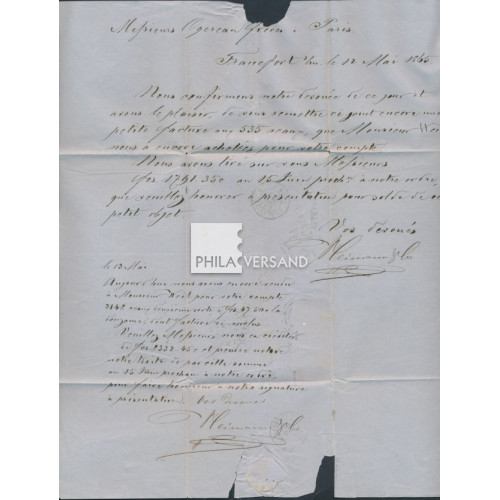 Messieurs Ogereau frères à Paris
Francfort s/m le 12 Mai 1865
Nous confirmons notre devouée de ce jour et
avons le plaisir de vous remettre ci joint encore une
petite facture aux 535 veaux, que Monsieur
nous a encore achetées pour votre compte
Nous avons tiré sur vous Messieurs
frs 1791 35c au 15 Juin proch. à notre ordre,
que veuillez honorer à présentation pour solde de ce
petit objet.
Vos devoués
Heimann & Co
PHILA VERSAND
le 13 Mai
Aujourd'hui nous avons encore vendu
à Monsieur pour votre compte
facture ci inclus
Veuillez Messieurs nous en créditer
de frs 2333.45c et prendre notre
notre traite de pareille somme
au 15 Juin prochain à notre ordre
pour faire honneur à notre signature
à présentation.
Vos devoués
Heimann & Co